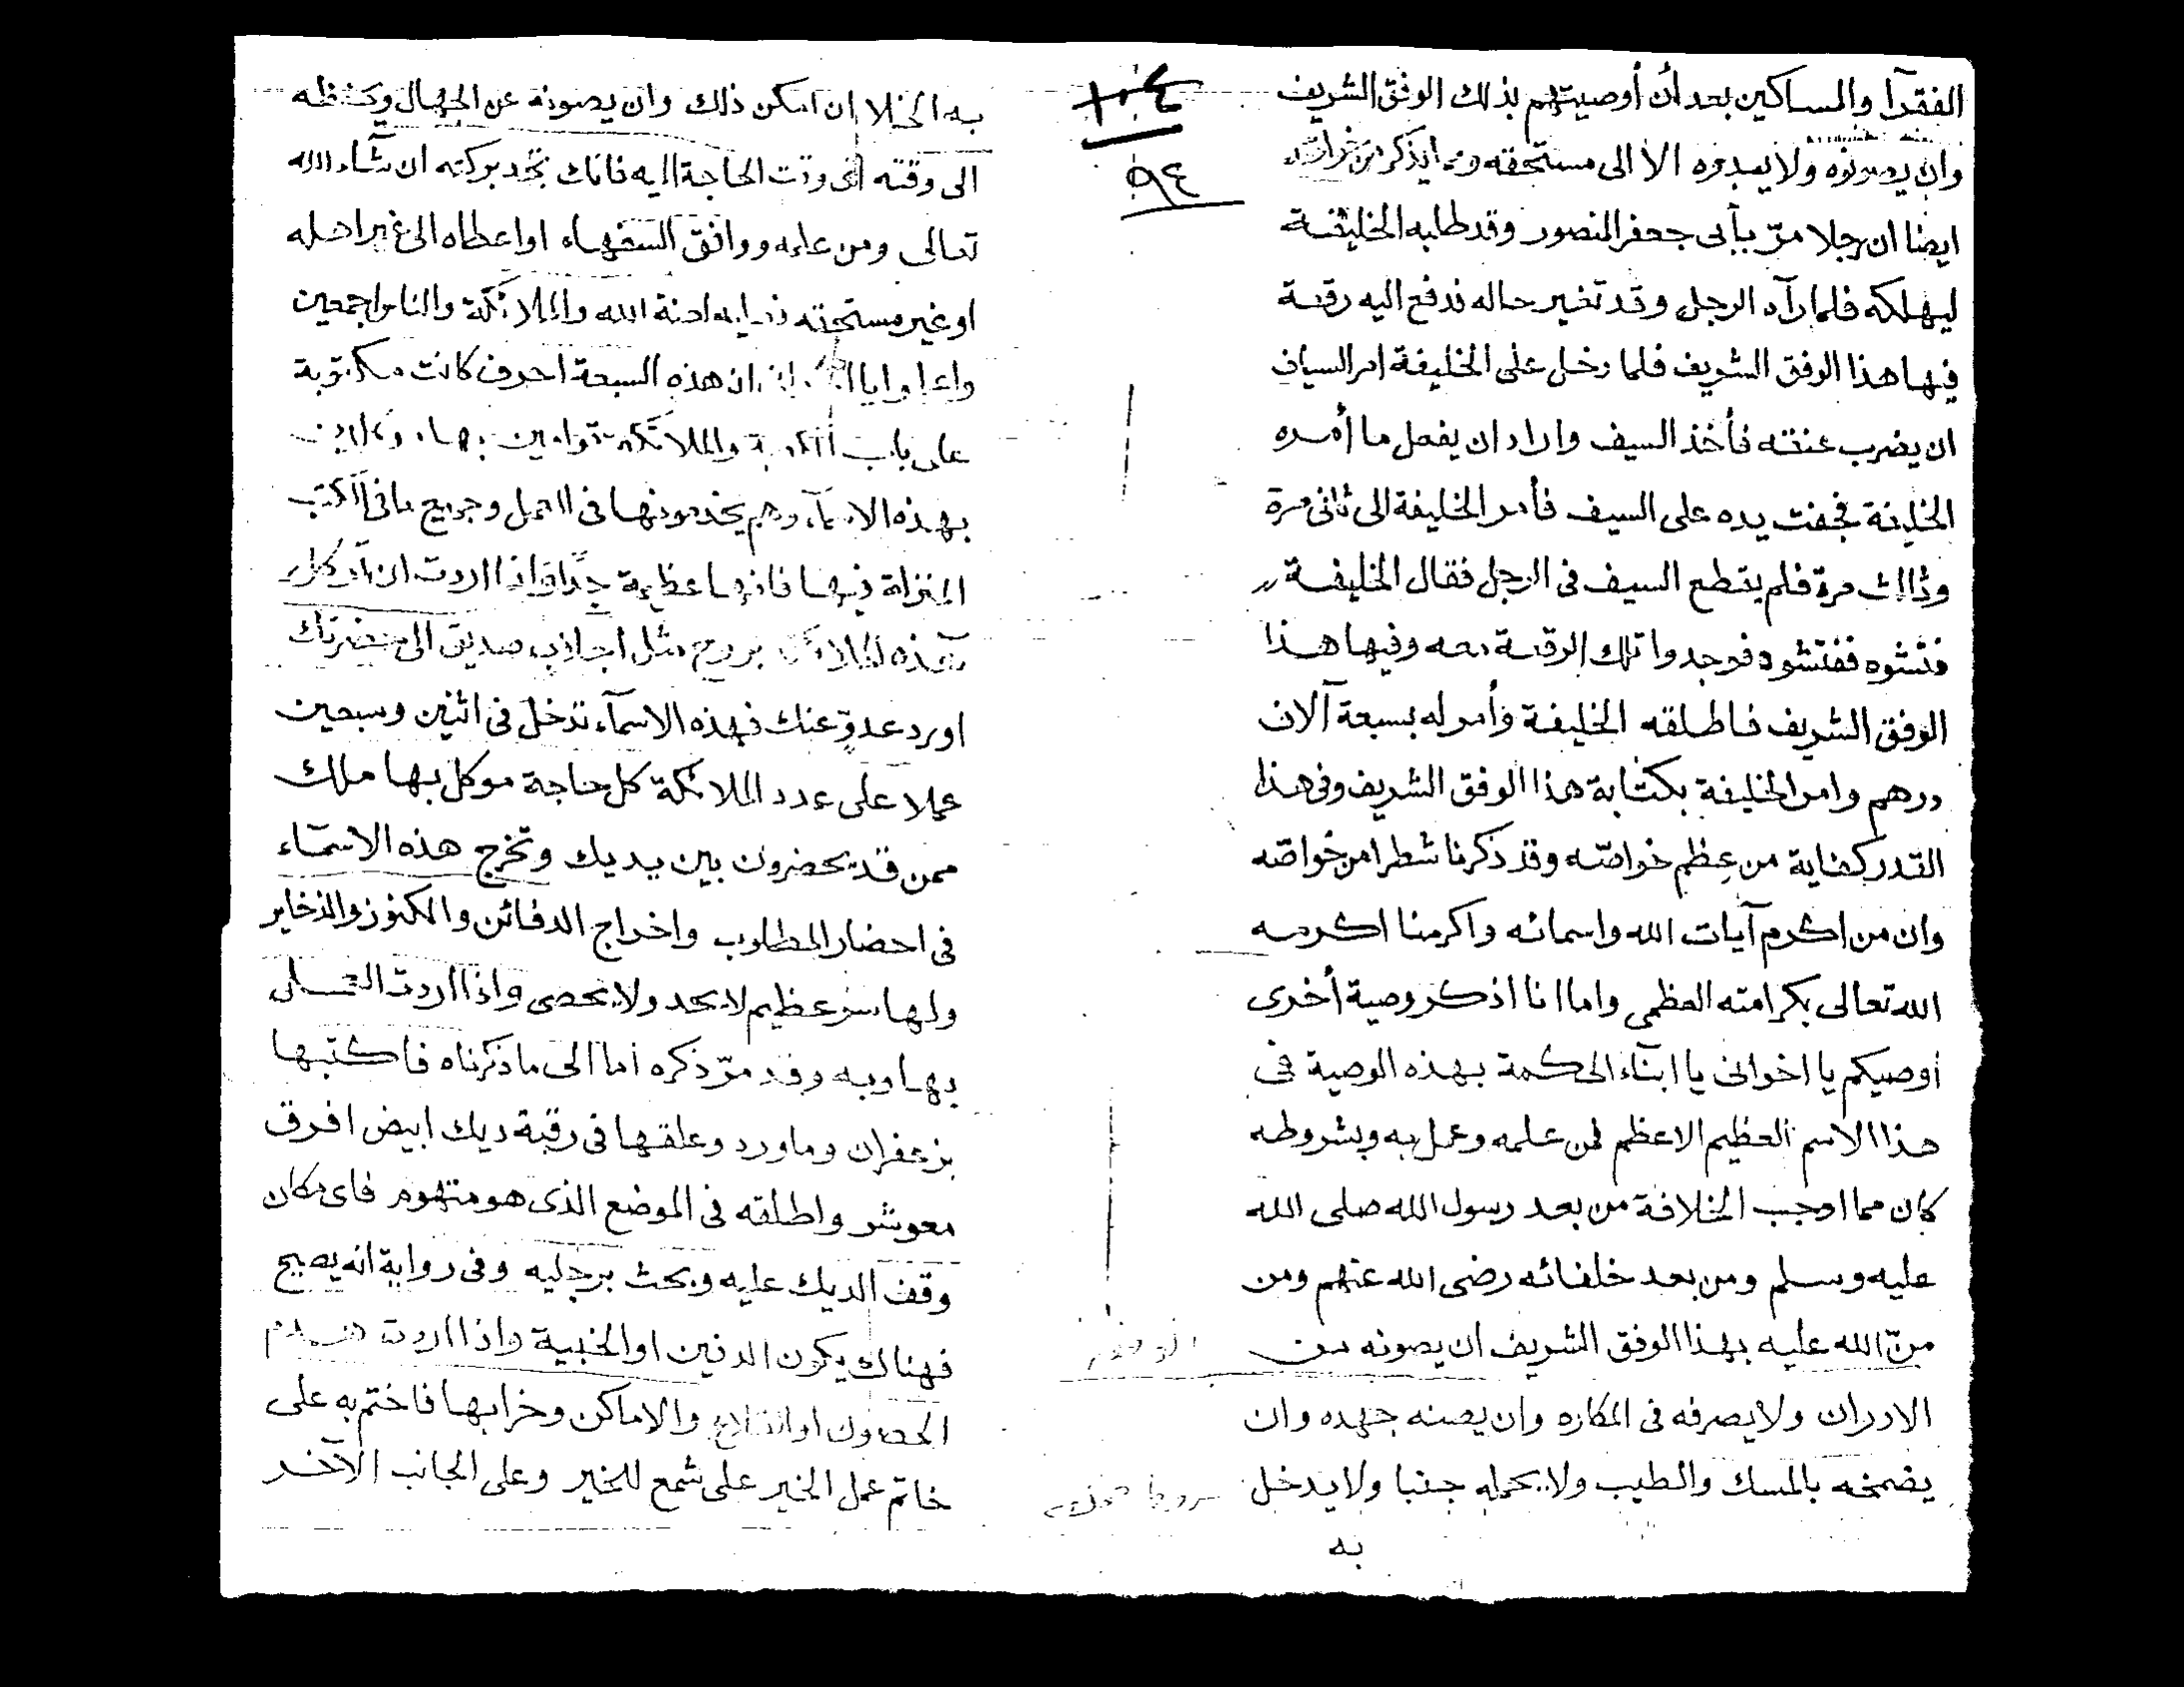 الفقرآ والمساكين بعد أن أوصيتهم بذلك الوفق الشريف
وان يصونوه ولا يعبدوه الا الى مستحقه ومما يذكر من
ايضا ان رجلا مرّ بأبى جعفر المنصور وقد طلبه الخليفة
ليهلكه فلما رآه الرجل وقد تغير حاله فدفع اليه رقعة
فيها هذا الوفق الشريف فلما دخل على الخليفة امر السياف
ان يضرب عنقه فأخذ السيف واراد ان يفعل ما أمره
الخليفة فجفت يده على السيف فأمر الخليفة الى ثانى مرة
وثالث مرة فلم يقطع السيف فى الرجل فقال الخليفة
فتشوه ففتشوه فوجدوا تلك الرقعة معه وفيها هذا
الوفق الشريف فاطلقه الخليفة وأمر له بسبعة آلاف
درهم وامر الخليفة بكتابة هذا الوفق الشريف وفى هذا
القدر كفاية من عظم خواصّه وقد ذكرنا شطرا من خواصّه
وان من اكرم آيات الله واسمائه واكرمنا اكرمه
الله تعالى بكرامته العظمى واما انا اذكر وصية أخرى
أوصيكم يا اخوانى يا ابنآء الحكمة بهذه الوصية فى
هذا الاسم العظيم الاعظم لمن علمه وعمل به وبشروطه
كان مما اوجب الخلافة من بعد رسول الله صلى الله
عليه وسلم ومن بعد خلفائه رضى الله عنهم ومن
منّ الله عليه بهذا الوفق الشريف ان يصونه من
الادران ولا يصرفه فى المكاره وان يصنه جهده وان
يضمخه بالمسك والطيب ولا يحمله جنبا ولا يدخل
به
١٠٤
٩٤
به الخلا ان امكن ذلك وان يصونه عن الجهال ويحفظه
الى وقته الى وقت الحاجة اليه فانك تجد بركته ان شآء الله
تعالى ومن علمه ووافق السفهاء او اعطاه الى غير اهله
او غير مستحقه فعليه لعنة الله والملائكة والناس اجمعين
ان هذه السبعة احرف كانت مكتوبة
على باب الكعبة والملائكة بها
بهذه الاسمآء وهم يخدمونها فى العمل وجميع ما فى الكتب
المنزلة فيها فانها عظيمة جدّا واذا اردت ان
بروح مثل اجلاب صديق الى حضرتك
اورد عدوّ عنك فهذه الاسمآء تدخل فى اثنين وسبعين
عملا على عدد الملائكة كل حاجة موكل بها ملك
ممن قد يحضرون بين يديك وتخرج هذه الاسمآء
فى احضار المطلوب واخراج الدفائن والكنوز والذخاير
ولها سر عظيم لا يحد ولا يحصى واذا اردت
بها وبه وقد مرّ ذكره اما الى ما ذكرناه فاكتبها
بزعفران وماورد وعلقها فى رقبة ديك ابيض افرق
معوشر واطلقه فى الموضع الذى هو متهوم فاى مكان
وقف الديك عليه وبحث برجليه وفى رواية انه يصيح
فهناك يكون الدفين او الخبية واذا اردت هدم
الحصون او القلاع والاماكن وخرابها فاختم به على
خاتم عمل الخير على شمع للخير وعلى الجانب الآخر